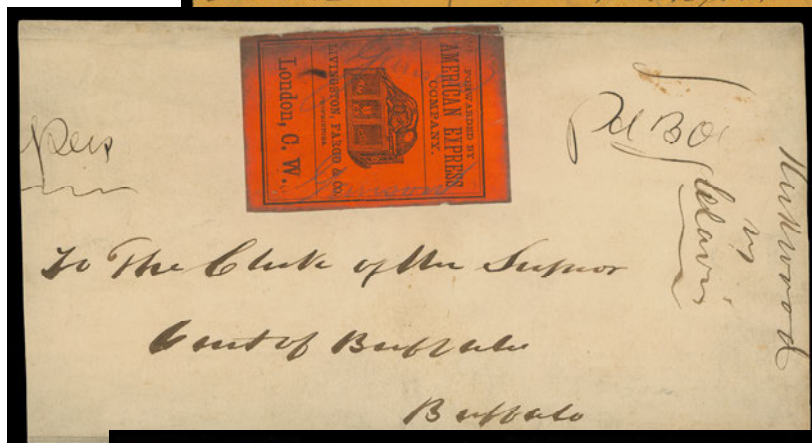 FORWARDED BY
AMERICAN EXPRESS
COMPANY.
LIVINGSTON, FARGO & CO.
London, C. W.
Pd BO
Kirkwood
vs
Clavi
To The Clerk of the Superior
Court of Buffalo
Buffalo